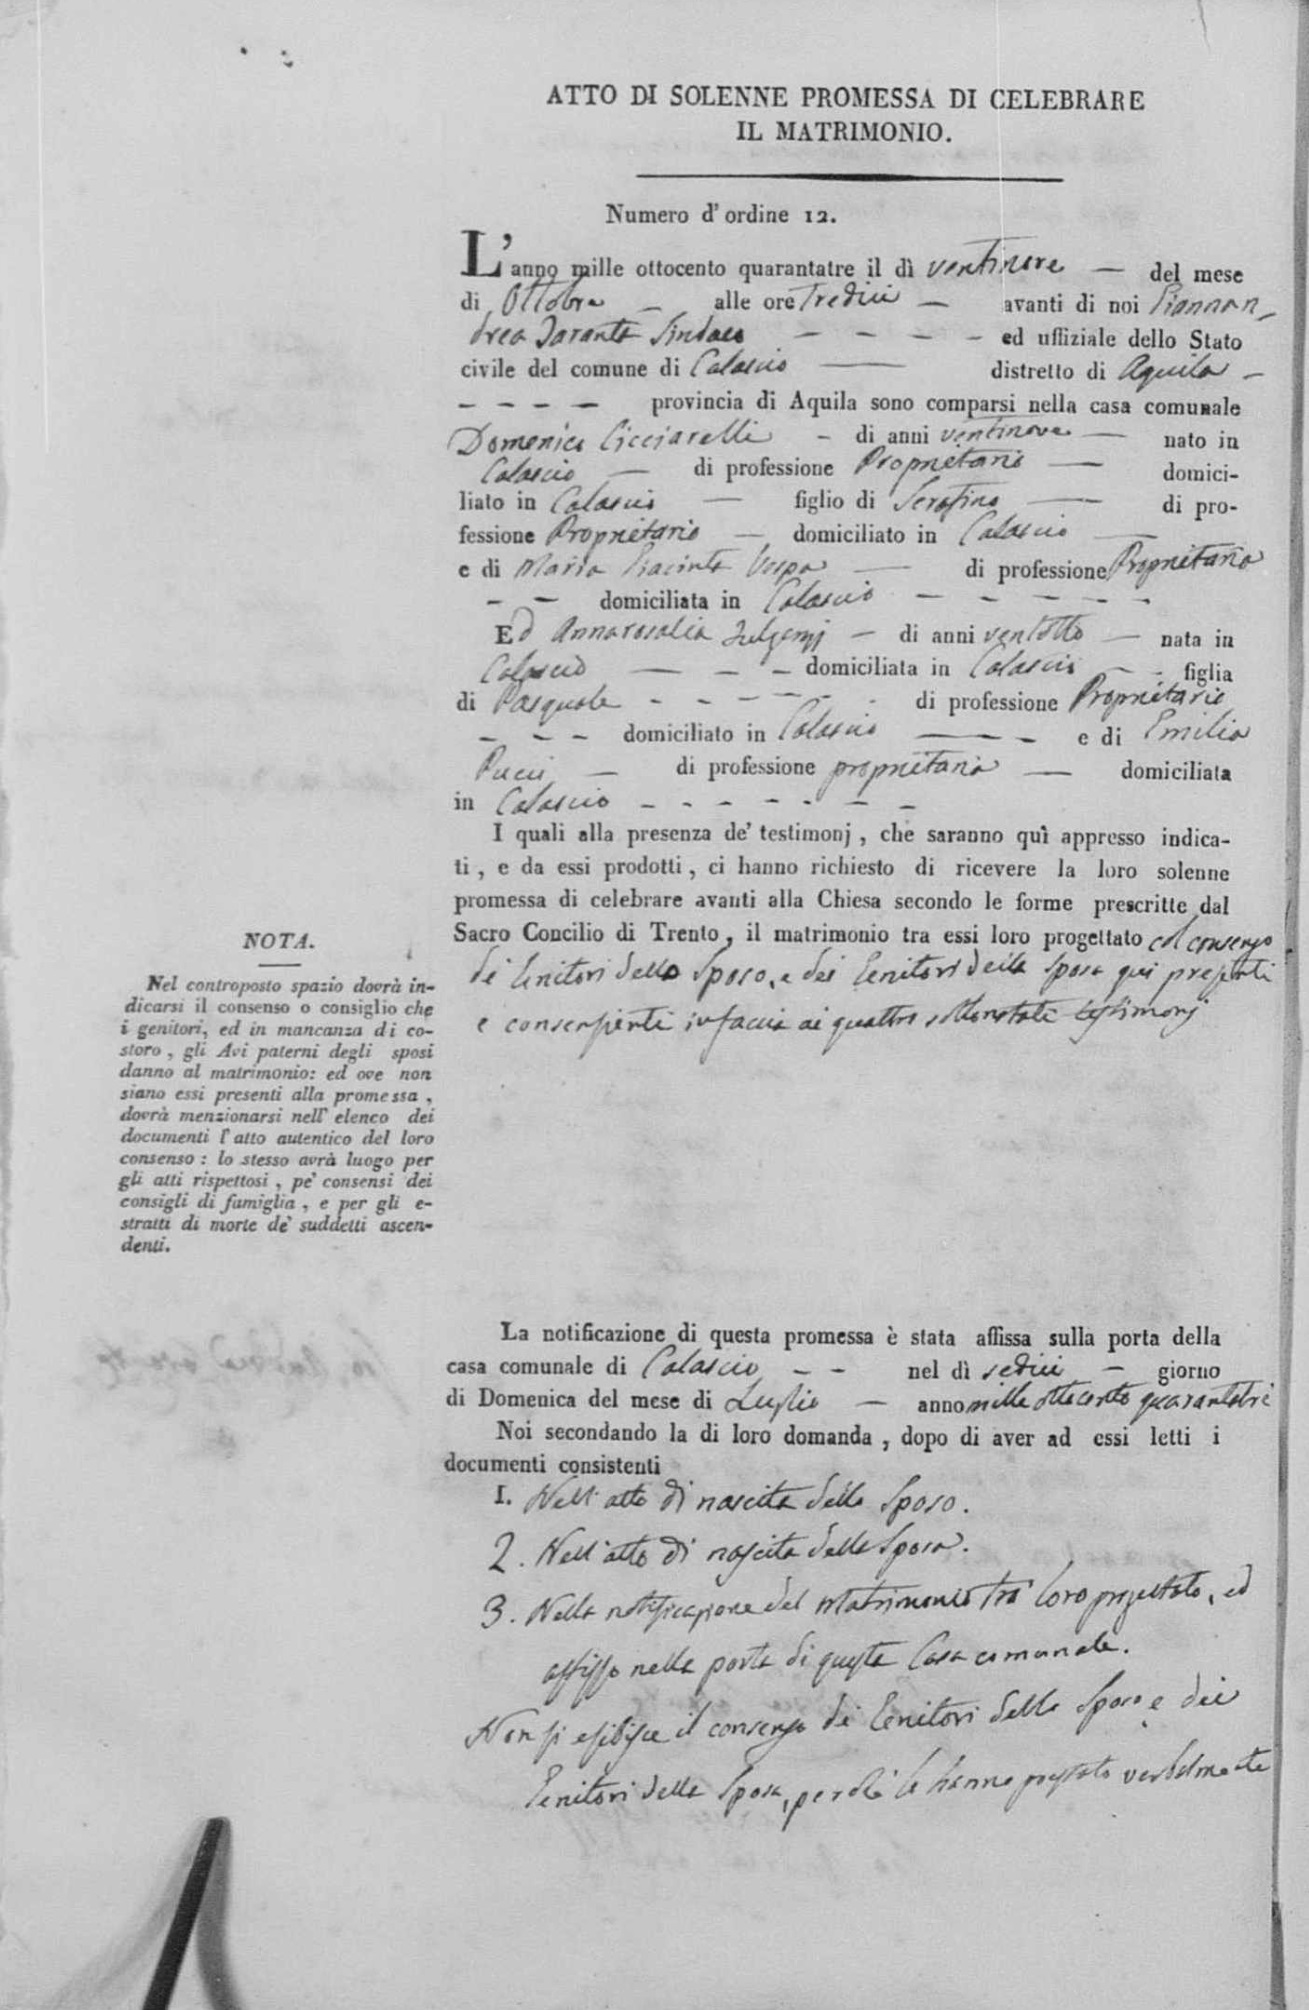 ATTO DI SOLENNE PROMESSA DI CELEBRARE
IL MATRIMONIO.
Numero d'ordine 12.
L'anno mille ottocento quarantatre il dì ventinove — del mese
di Ottobre — alle ore tredici — avanti di noi Giannan-
drea Taranta Sindaco — — — — ed uffiziale dello Stato
civile del comune di Calascio — distretto di Aquila —
— — — — provincia di Aquila sono comparsi nella casa comunale
Domenico Cicciarelli — di anni ventinove — nato in
Calascio — di professione Proprietario — domici-
liato in Calascio — figlio di Serafino — di pro-
fessione Proprietario — domiciliato in Calascio —
e di Maria Giacinta Vespa — di professione Proprietaria
— — domiciliata in Calascio — — — — —
Ed Annarosalia Fulgenzj — di anni ventotto — nata in
Calascio — — — domiciliata in Calascio — - figlia
di Pasquale - - - - - - di professione Proprietario
— — — domiciliato in Calascio — — — e di Emilia
Pucci — di professione proprietaria — domiciliata
in Calascio - - - - - - -
I quali alla presenza de' testimonj, che saranno quì appresso indica-
ti, e da essi prodotti, ci hanno richiesto di ricevere la loro solenne
promessa di celebrare avanti alla Chiesa secondo le forme prescritte dal
Sacro Concilio di Trento, il matrimonio tra essi loro progettato col consenso
di Genitori dello Sposo, e dei Genitori della Sposa qui presenti
e consenzienti in faccia ai quattro sottonotati testimonj
NOTA.
Nel controposto spazio dovrà in-
dicarsi il consenso o consiglio che
i genitori, ed in mancanza di co-
storo, gli Avi paterni degli sposi
danno al matrimonio: ed ove non
siano essi presenti alla promessa,
dovrà menzionarsi nell' elenco dei
documenti l'atto autentico del loro
consenso: lo stesso avrà luogo per
gli atti rispettosi, pe' consensi dei
consigli di famiglia, e per gli e-
stratti di morte de' suddetti ascen-
denti.
La notificazione di questa promessa è stata affissa sulla porta della
casa comunale di Calascio — — nel dì sedici — giorno
di Domenica del mese di Luglio — anno mille ottocento quarantatre
Noi secondando la di loro domanda, dopo di aver ad essi letti i
documenti consistenti
1. Nell'atto di nascita dello Sposo.
2. Nell'atto di nascita della Sposa.
3. Nella notificazione del Matrimonio trà loro progettato, ed
affisso nella porta di questa Casa comunale.
Non si esibisce il consenso di Genitori dello Sposo e dei
Genitori della Sposa, perchè lo hanno prestato verbalmente